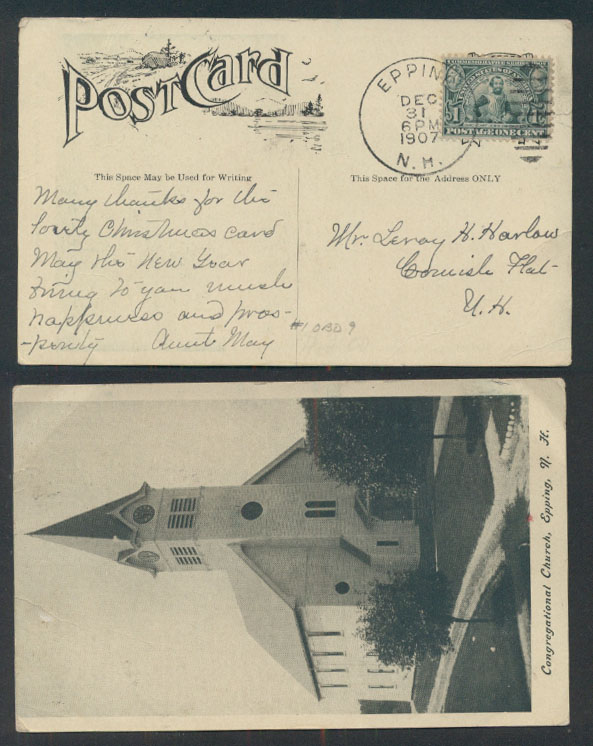 POST CARD
EPPING
DEC
31
6 PM
1907
N.H.
POSTAGE ONE CENT
This Space May be Used for Writing
This Space for the Address ONLY
Many thanks for the
lovely Christmas card
May the New Year
bring to you much
happiness and pros-
-perity Aunt May
#10BD9
Mr. Leroy H. Harlow
Cornish Flat
N.H.
Congregational Church, Epping, N. H.